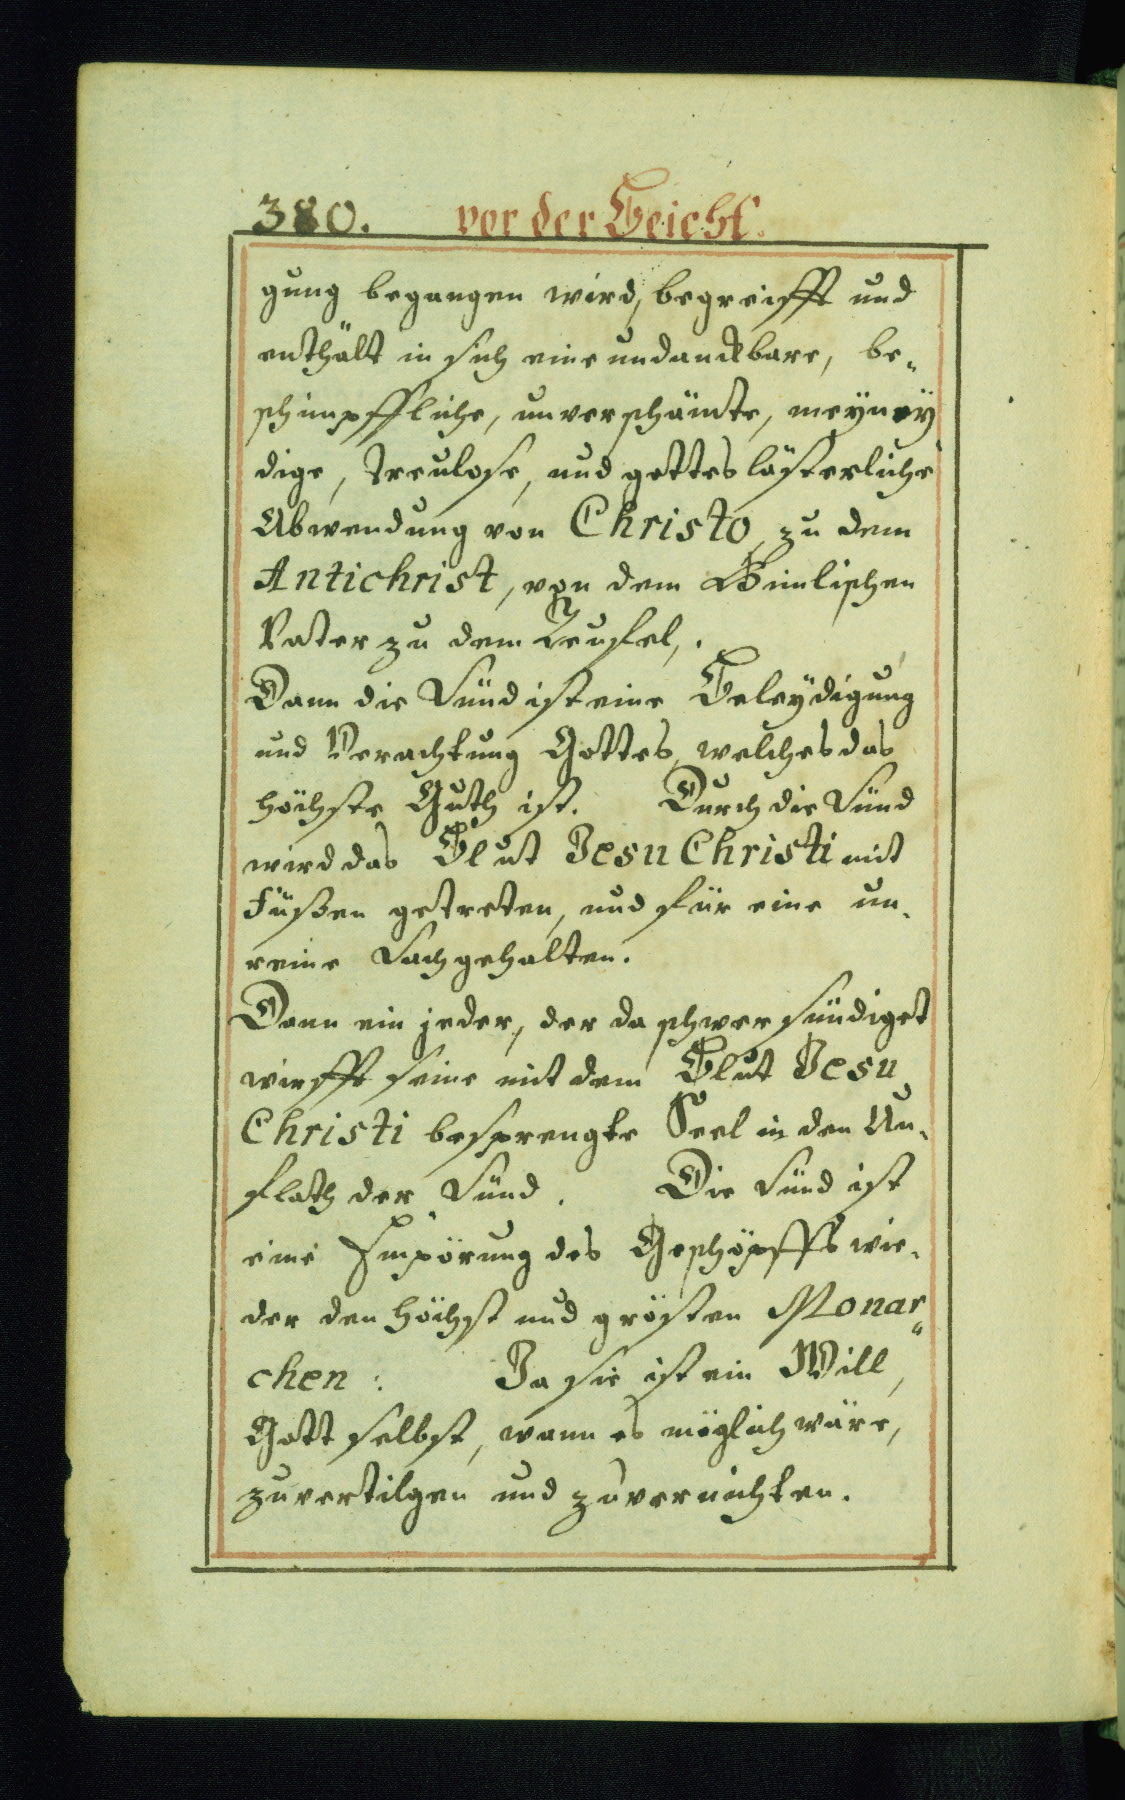 380. vor der Beicht.
gung begangen wird, begreifft und
enthält in sich eine undanckbare, be„
schimpffliche, unverschämte, meyney
dige, treulose, und gotteslästerliche
Abwendung von Christo, zu dem
Antichrist, von dem Himlischen
Vater zu dem Teufel,.
Dann die Sünd ist eine Beleÿdigung
und Verachtung Gottes, welches das
höchste Guth ist. Durch die Sünd
wird das Blut Jesu Christi mit
Füßen getreten, und für eine un„
reine Sach gehalten.
Dann ein jeder, der da schwer sündiget
wirfft seine mit dem Blut Jesu
Christi besprengte Seel in den Un„
flath der Sünd. Die Sünd ist
eine Empörung des Geschöpffs wie„
der den höchst und grösten Monar„
chen: Ja sie ist ein Will,
Gott selbst, wann es möglich wäre,
zuvertilgen und zuvernichten.